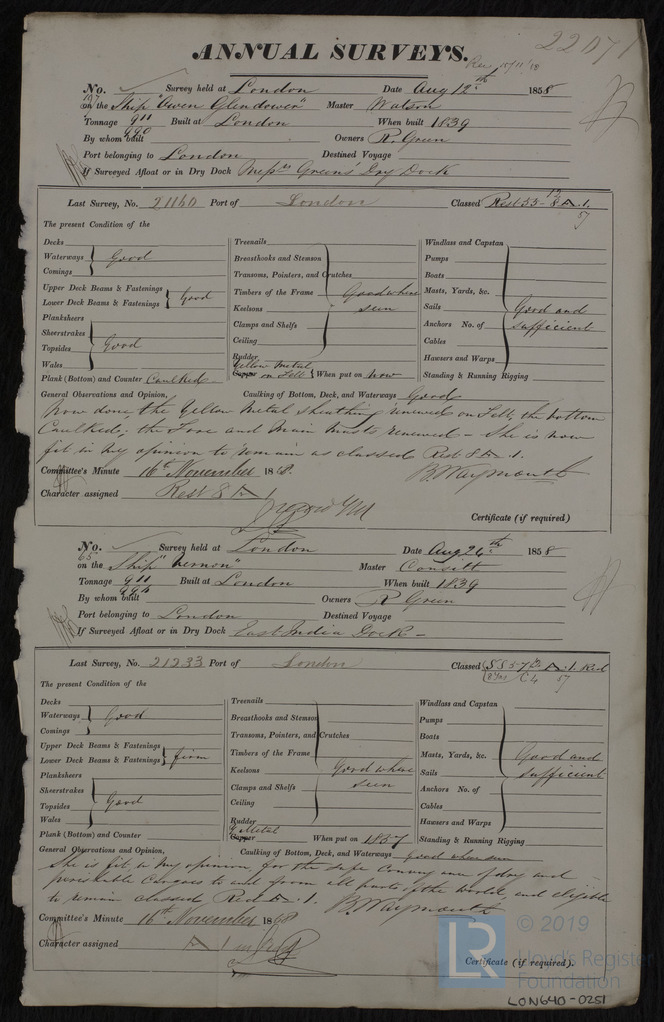 22071
ANNUAL SURVEYS.
Rec 15/11/58
No. Survey held at London Date Aug 12th 1858
on the Ship "Owen Glendower" Master Watson
Tonnage 911 Built at London When built 1839
By whom built Owners R. Green
Port belonging to London Destined Voyage
If Surveyed Afloat or in Dry Dock Messrs Greens' Dry Dock
Last Survey, No. 21160 Port of London Classed
The present Condition of the
Decks Treenails Windlass and Capstan
Waterways Good Breasthooks and Stemson Pumps
Comings Transoms, Pointers, and Crutches Boats
Upper Deck Beams & Fastenings Timbers of the Frame Good where Masts, Yards, &c.
Lower Deck Beams & Fastenings Good Keelsons seen Sails Good and
Planksheers Clamps and Shelfs Anchors No. of sufficient
Sheerstrakes Ceiling Cables
Topsides Good Rudder Hawsers and Warps
Wales Yellow Metal
Plank (Bottom) and Counter Caulked Copper on Felt When put on now Standing & Running Rigging
General Observations and Opinion, Caulking of Bottom, Deck, and Waterways Good
Now done the Yellow Metal sheathing renewed on Felt, the bottom
Caulked, the Fore and Main Masts renewed – She is now
fit in my opinion to remain as classed Rest 8 A. 1.
Committee's Minute 16th November 1858. B. Waymouth
Character assigned Rest 8 A 1
Certificate (if required)
No. Survey held at London Date Aug 24th 1858
on the Ship "Vernon" Master Consitt
Tonnage 911 Built at London When built 1839
By whom built Owners R Green
Port belonging to London Destined Voyage
If Surveyed Afloat or in Dry Dock East India Dock –
Last Survey, No. 21233 Port of London Classed
The present Condition of the
Decks Treenails Windlass and Capstan
Waterways Good Breasthooks and Stemson Pumps
Comings Transoms, Pointers, and Crutches Boats
Upper Deck Beams & Fastenings Timbers of the Frame Masts, Yards, &c. Good and
Lower Deck Beams & Fastenings firm Keelsons Good where Sails sufficient
Planksheers Clamps and Shelfs seen Anchors No. of
Sheerstrakes Ceiling Cables
Topsides Good Rudder Hawsers and Warps
Wales Y Metal
Plank (Bottom) and Counter Copper When put on 1857 Standing & Running Rigging
General Observations and Opinion, Caulking of Bottom, Deck, and Waterways Good when seen
She is fit in my opinion for the safe conveyance of dry and
perishable Cargoes to and from all parts of the world, and eligible
to remain classed Red A. 1. B. Waymouth
Committee's Minute 16th November 1858
Character assigned A 1 in Red
Certificate (if required).
LR © 2019
Lloyd's Register
Foundation
LON640-0251